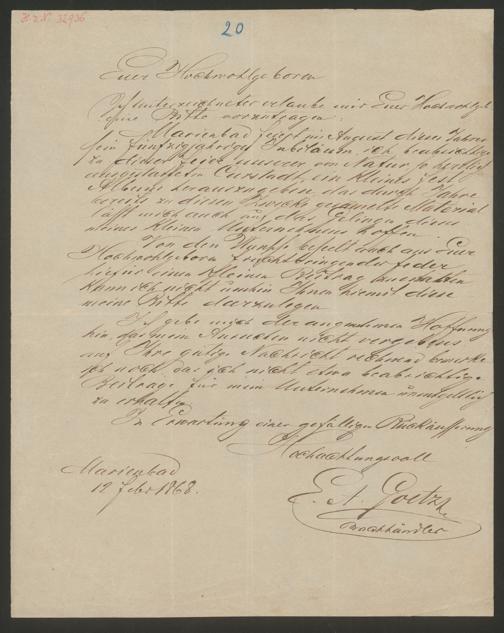 H.I.N. 32936
20
Euer Hochwohlgeboren
Ich unterzeichneter erlaube mir Euer Hochwohlgeb
eine Bitte vorzutragen:
Marienbad feiert im August dieses Jahres
sein fünfzigjähriges Jubiläum. Ich beabsichtige
zu dieser Feier unserer von Natur so herrlich
ausgestatteten Curstadt, ein kleines Fest
Album herauszugeben, das durch Jahre
bereits zu diesem Zwecke gesammelte Material
läßt mich auch auf das Gelingen dieses
meines kleinen Unternehmens hoffen.
Von dem Wunsche beseelt auch aus Euer
Hochwohlgeboren Feder
hiefür einen kleinen Beitrag zu erhalten
kann ich nicht umhin Ihnen hiemit diese
meine Bitte darzulegen
Ich gebe mich der angenehmen Hoffnung
hin, das mein Ansuchen nicht vergebens
auf Ihre gütige Nachsicht rechnend bemerke
ich noch, das ich nicht etwa beabsichtige
Beiträge für mein Unternehmen unentgeltlich
zu erhalten
In Erwartung einer gefälligen Rückäußerung
Hochachtungsvoll
Marienbad
12 Feber 1868.
E. A. Goetz
Buchhändler